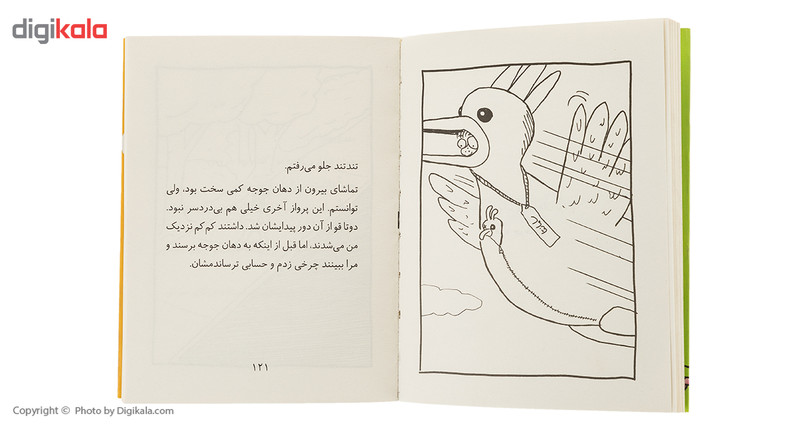 digikala
تندتند جلو می‌رفتم.
تماشای بیرون از دهان جوجه کمی سخت بود، ولی
توانستم. این پرواز آخری خیلی هم بی‌دردسر نبود.
دوتا قو از آن دور پیدایشان شد. داشتند کم‌کم نزدیک
من می‌شدند، اما قبل از اینکه به دهان جوجه برسند و
مرا ببینند چرخی زدم و حسابی ترساندمشان.
۱۲۱
Copyright © Photo by Digikala.com